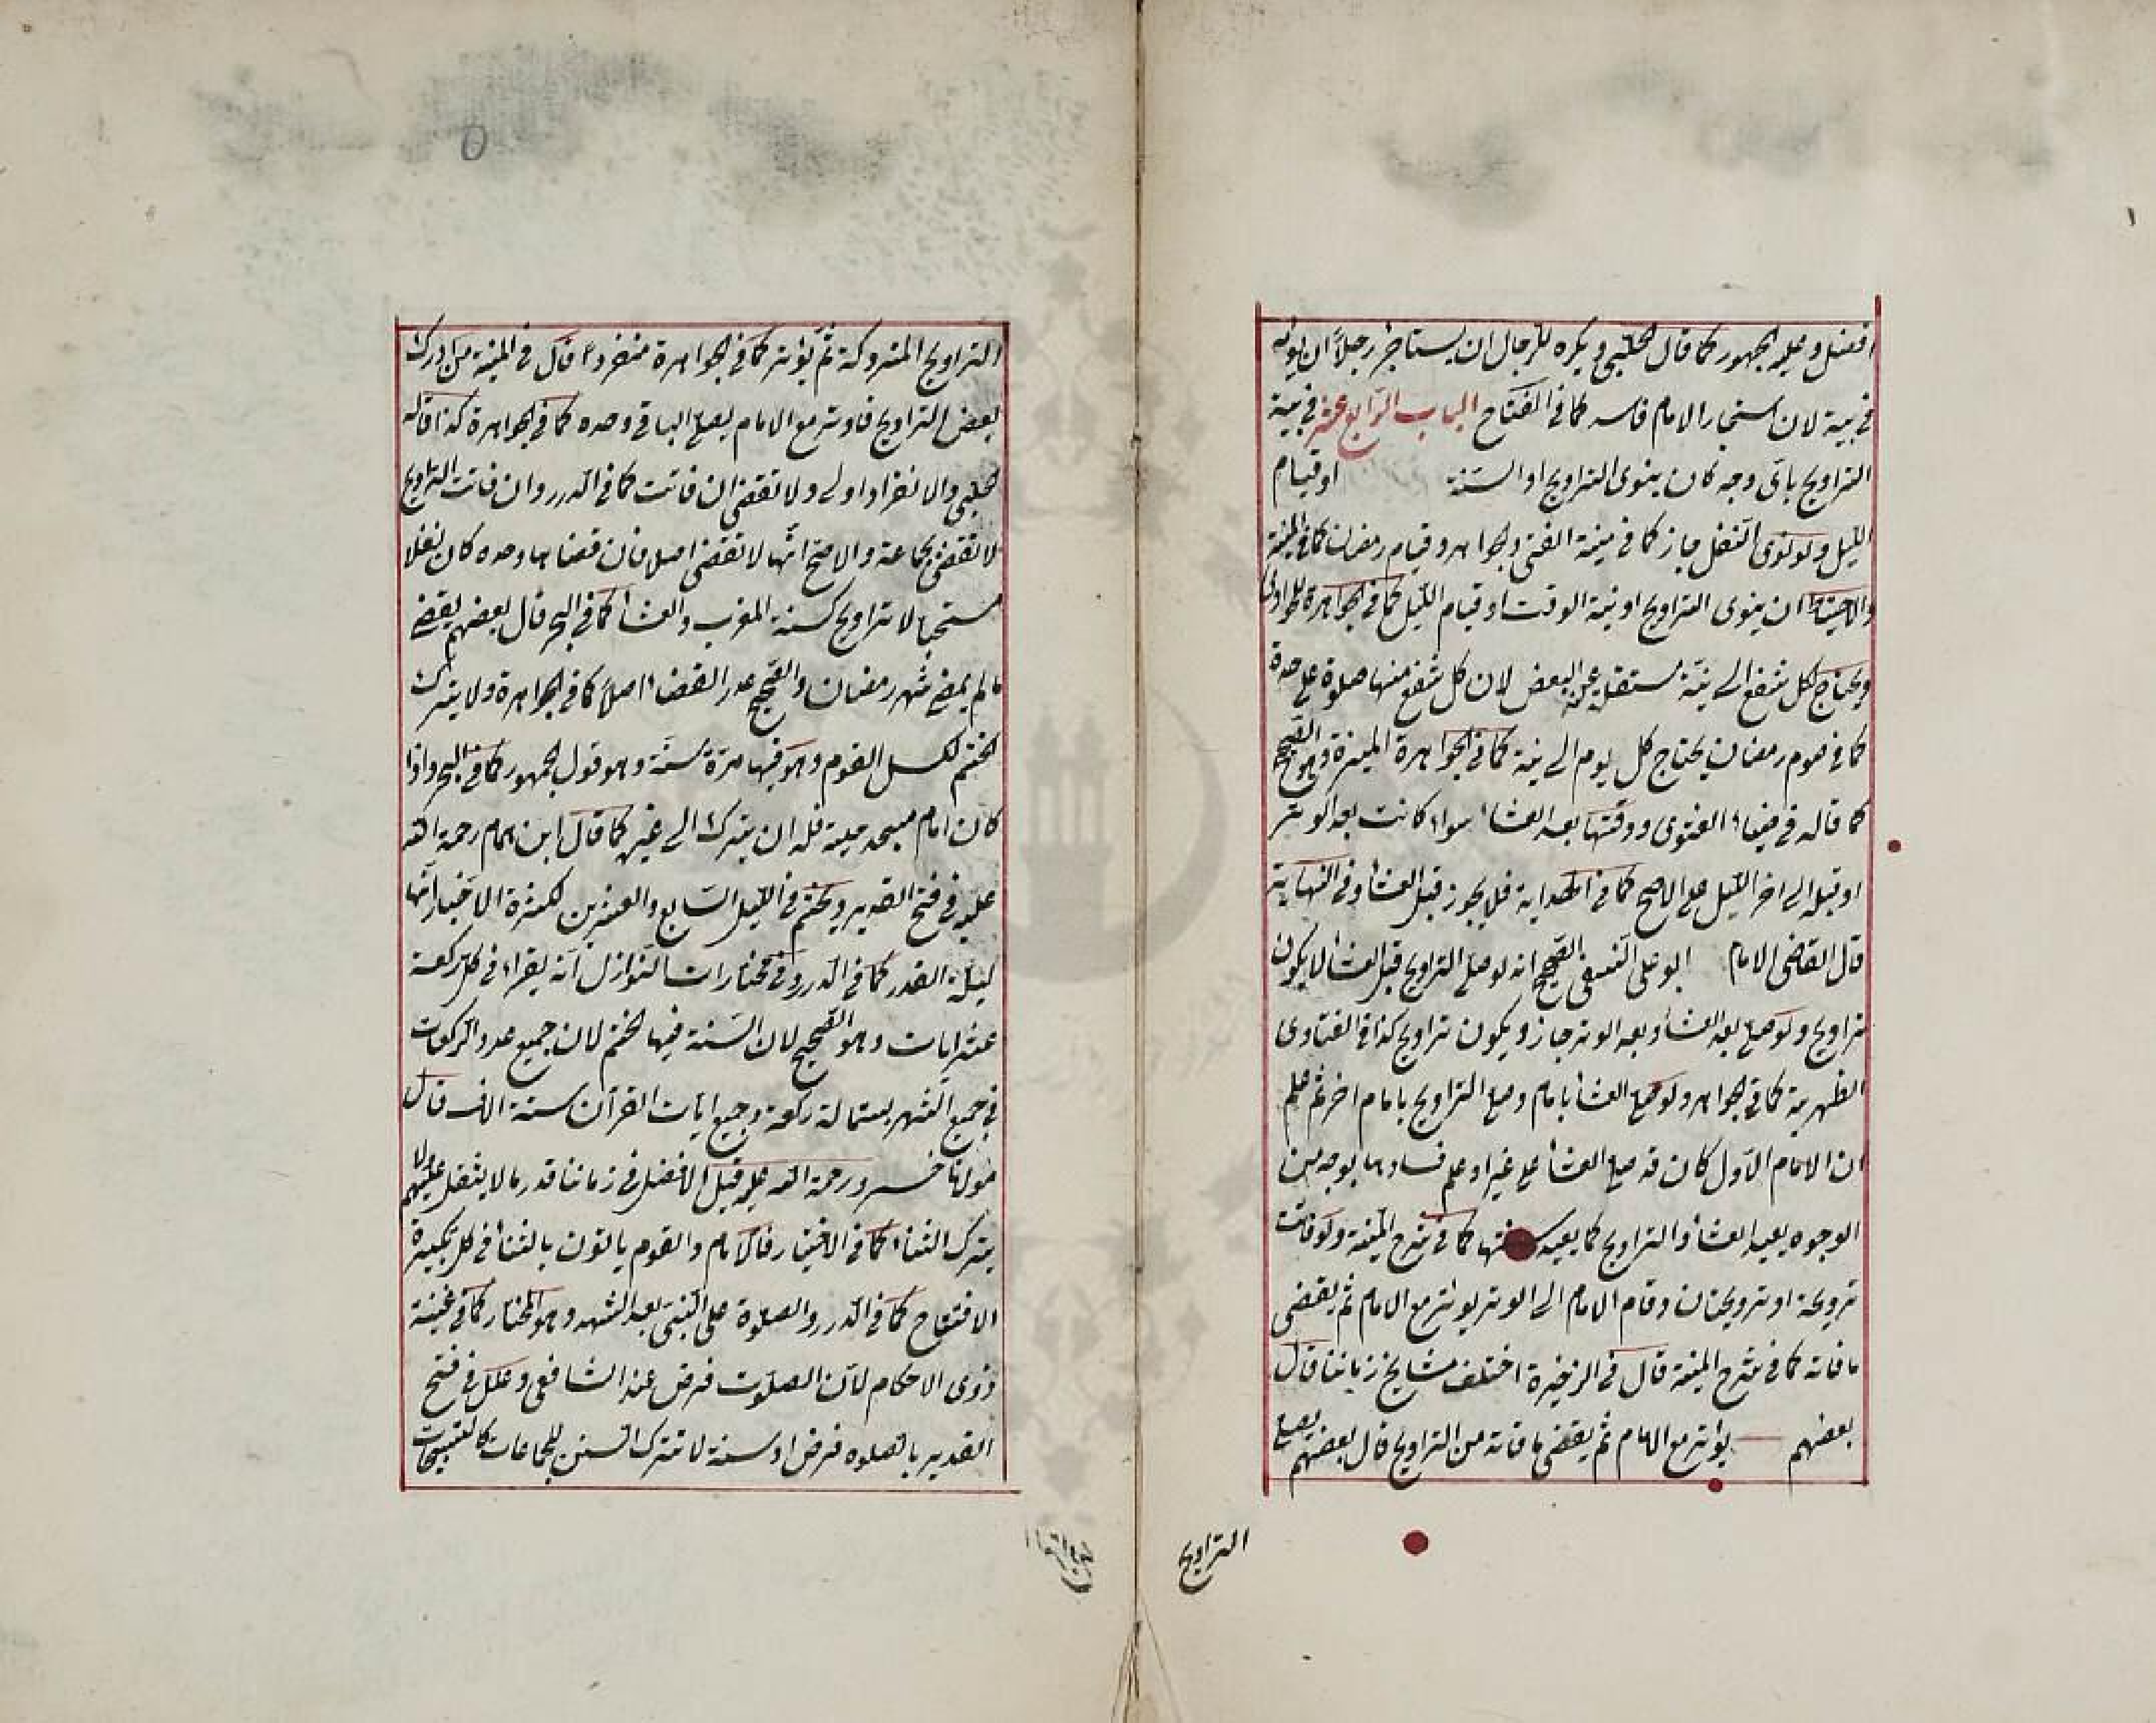 افضل وعليه الجمهور كما قال الحلبي ويكره للرجال ان يستأجر رجلا ان يؤمه
في بيته لان استيجار الامام فاسد كما في المفتاح الباب الرابع عشر في نية
التراويح باي وجه كان ينوى التراويح او السنة او قيام
الليل ولو نوى النفل جاز كما في منية المفتى والجواهر وقيام رمضان كما في المنية
والاحتياط ان ينوى التراويح او نية الوقت او قيام الليل كما في الجواهرة
ويحتاج لكل شفع الى نية مستقلة عن البعض لان كل شفع منها صلوة على حدة
كما في صوم رمضان يحتاج كل يوم الى نية كما في الجواهرة المنيرة وهو الصحيح
كما قاله في ضياء الفتوى ووقتها بعد العشاء سواء كانت بعد الوتر
او قبله الى اخر الليل على الاصح كما في الهداية فلا يجوز قبل العشاء وفي النهاية
قال القاضى الامام ابو على النسفى الصحيح انه لو صلى التراويح قبل العشاء لا يكون
تراويح ولو صلى بعد العشاء وبعد الوتر جاز ويكون تراويح كذا في الفتاوى
الظهيرية كما في الجواهر ولو صلى العشاء بامام وصلى التراويح بامام اخر ثم علم
ان الامام الاول كان قد صلى العشاء على غير او علم فسادها بوجه من
الوجوه يعيد العشاء والتراويح كما يعيد سنتها كما في شرح المنية ولو فاتت
ترويحة او ترويحتان وقام الامام الى الوتر يوتر مع الامام ثم يقضى
ما فاته كما في شرح المنية قال في الذخيرة اختلف مشايخ زماننا قال
بعضهم يوتر مع الامام ثم يقضى ما فاته من التراويح قال بعضهم يصلى
التراويح
التراويح المتروكة ثم يوتر كما في الجواهرة منفردا قال في المنية من ادرك
بعض التراويح فاوتر مع الامام يصلى الباقى وحده كما في الجواهرة كذا قاله
الحلبي والانفراد اولى ولا تقضى ان فاتت كما في الدرر وان فاتت التراويح
لا تقضى بجماعة والاصح انها لا تقضى اصلا فان قضاها وحده كان نفلا
مستحبا لا تراويح كسنة المغرب والعشاء كما في البحر قال بعضهم يقضى
ما لم يمض شهر رمضان والصحيح عدم القضاء اصلا كما في الجواهرة ولا يترك
الختم لكسل القوم وهو فيها مرة سنة وهو قول الجمهور كما في البحر واذا
كان امام مسجد حيه فله ان يترك الى غيره كما قال ابن همام رحمة الله
عليه في فتح القدير ويختم في الليل السابع والعشرين لكثرة الاخبار انها
ليلة القدر كما في الدرر وفي مختارات النوازل انه يقراء في كل ركعة
عشر ايات وهو الصحيح لان السنة فيها الختم لان جميع عدد الركعات
في جميع الشهر ستمائة ركعة وجميع ايات القرآن ستة الاف قال
مولانا خسرو رحمة الله عليه قيل الافضل في زماننا قدر ما لا يثقل عليهم ولا
يترك الثناء كما في الاختيار فالامام والقوم ياتون بالثناء في كل تكبيرة
الافتتاح كما في الدرر والصلوة على النبي بعد التشهد وهو المختار كما في
ذوى الاحكام لان الصلوت فرض عند الشافعى وعلل في فتح
القدير بالصلوه فرض او سنة لا تترك السنن للجماعات كالتسبيحات